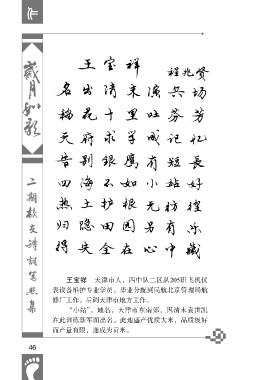 王宝祥
程兆贤
名出清末演兵场
稻花十里吐芬芳
天府求学成记忆
告别银鹰有短长
四海不如小站好
热土护根无彷徨
归隐田园另有乐
得失全在心中藏
王宝祥 天津市人，四中队二区队205班飞机仪
表设备维护专业学员，毕业分配到民航北京管理局航
修厂工作，后调天津市地方工作。
“小站”，地名，天津市东南部，因清末袁世凯
在此训练新军而出名，此地盛产优质大米，品质极好
而产量有限，遂成为贡米。
岁月如歌
二期校友诗词
集
46